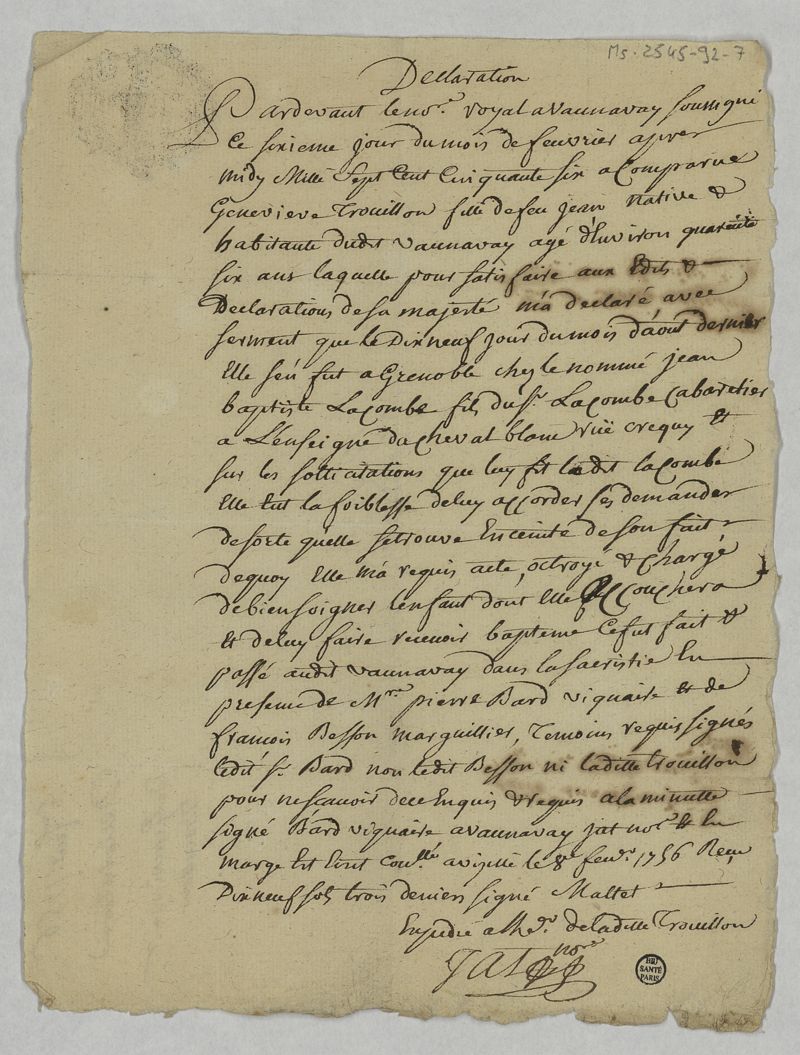 Ms. 2545-92-7
Declaration
Pardevant le no.re royal a Vaunavay soussigné
Ce sixieme jour du mois de feuvrier apres
midy Mille Sept Cent Cinquante six a Comparue
Genevieve Trouillon fille de feu jean Native &
habitante dudit Vaunavay agé d'Environ quarante
six ans laquelle pour satisfaire aux Edits &
Declarations de sa majesté m'a declaré avec
serment que le Dix neuf jour du mois d'aout dernier
Elle s'en fut a Grenoble chez le nommé jean
baptiste Lacombe fils du Sr. Lacombe Cabaretier
a L'enseigne du cheval blanc ruë crequy Et
sur les sollicitations que luy fit ledit lacombe
Elle Eut la foiblesse de luy accorder ses demandes
de sorte qu'elle se trouve Enceinte de son fait
de quoy Elle m'a requis acte, octroyé & chargé
de bien soigner l'enfant dont Elle accouchera
Et de luy faire recevoir bapteme Ce fut fait &
passé audit Vaunavay dans la sacristie En
presence de M.re pierre Bard viquaire Et de
francois Besson marguillier, Temoins requis signés
ledit Sr. Bard non ledit Besson ni laditte trouillon
pour ne scavoir de ce Enquis & requis a la minutte
signé Bard viquaire a Vaunavay jat no.re & En
marge Est Ecrit Con.llé a vizille le 8e fev.r 1756 Reçu
Dix neuf sols trois deniers signé Mallet
Expedié a lad. de ladille Trouillon
Jat no.re
BIU
SANTÉ
PARIS